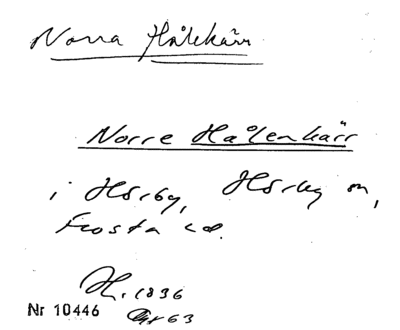 Norra Hålekärr
Norre Hålenkärr
i Hörby, Hörby sn,
Frosta hd.
H. 1836
Nr 10446 63